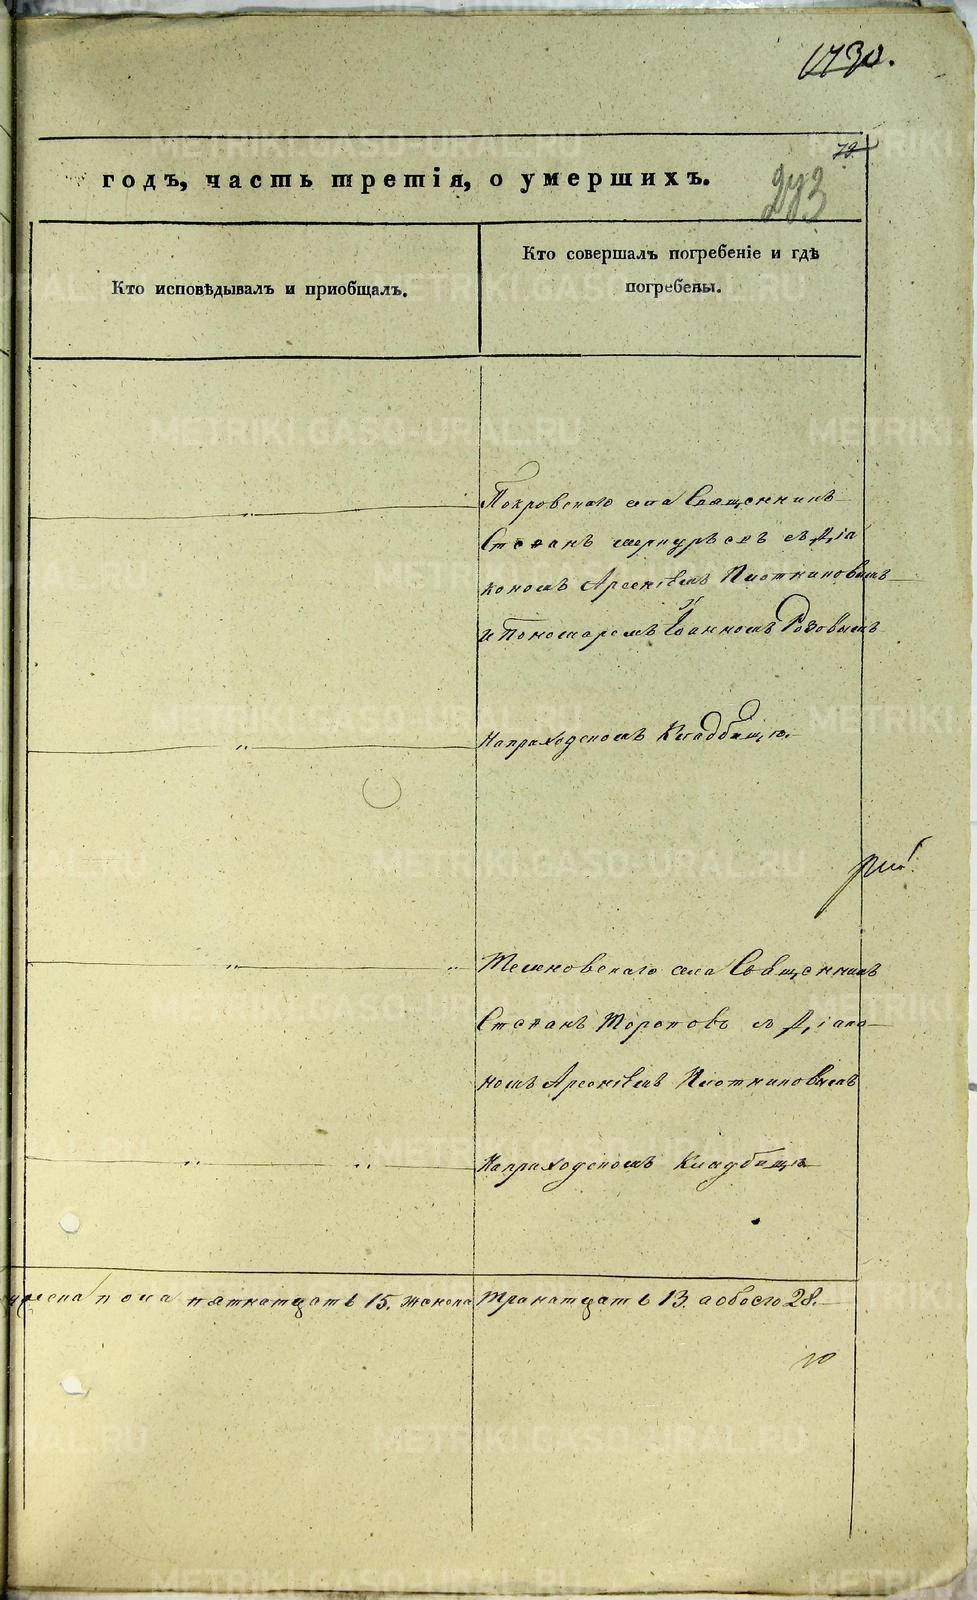 1730.
79.
годъ, часть третія, о умершихъ.
Кто исповѣдывалъ и приобщалъ.
Кто совершалъ погребеніе и гдѣ
погребены.
Покровскаго села Священникъ
Стефанъ съ Діа
кономъ Арсеніемъ Плотниковымъ
и Пономаремъ Іоанномъ Розовымъ
На приходскомъ Кладбищѣ.
села Священникъ
Стефанъ Торопов съ Діако
номъ Арсеніемъ Плотниковымъ
На приходскомъ Кладбищѣ
пола пятнатцать 15. женска Тринатцать 13. а обоего 28.
METRIKI.GASO-URAL.RU